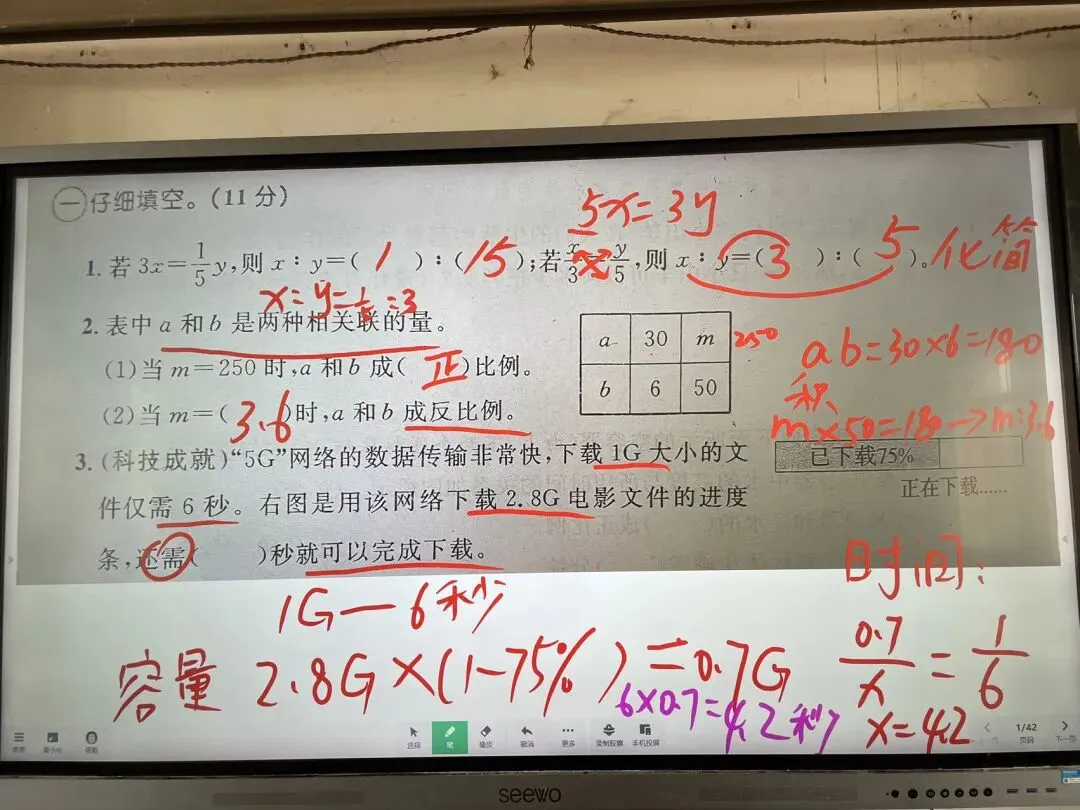 ㊀仔细填空。(11分)
5x=3y
1. 若 3x=1/5y,则 x∶y=( 1 )∶( 15 );若x/3=y/5,则 x∶y=( 3 )∶( 5 )。化简
2. 表中 a 和 b 是两种相关联的量。
a 30 m 250
ab=30×6=180
(1)当 m=250 时,a 和 b 成( 正 )比例。
b 6 50
积
(2)当 m=( 3.6 )时,a 和 b 成反比例。
m×50=180→m=3.6
3. (科技成就)“5G”网络的数据传输非常快,下载 1G 大小的文
已下载75%
件仅需 6 秒。右图是用该网络下载 2.8G 电影文件的进度
正在下载……
条,还需( )秒就可以完成下载。
时间:
1G—6秒
容量 2.8G×(1-75%)=0.7G
0.7/x=1/6
6×0.7=4.2秒
x=4.2
选择 笔 橡皮 撤消 更多 录制胶囊 手机投屏
1/42
页码
下一页
seewo